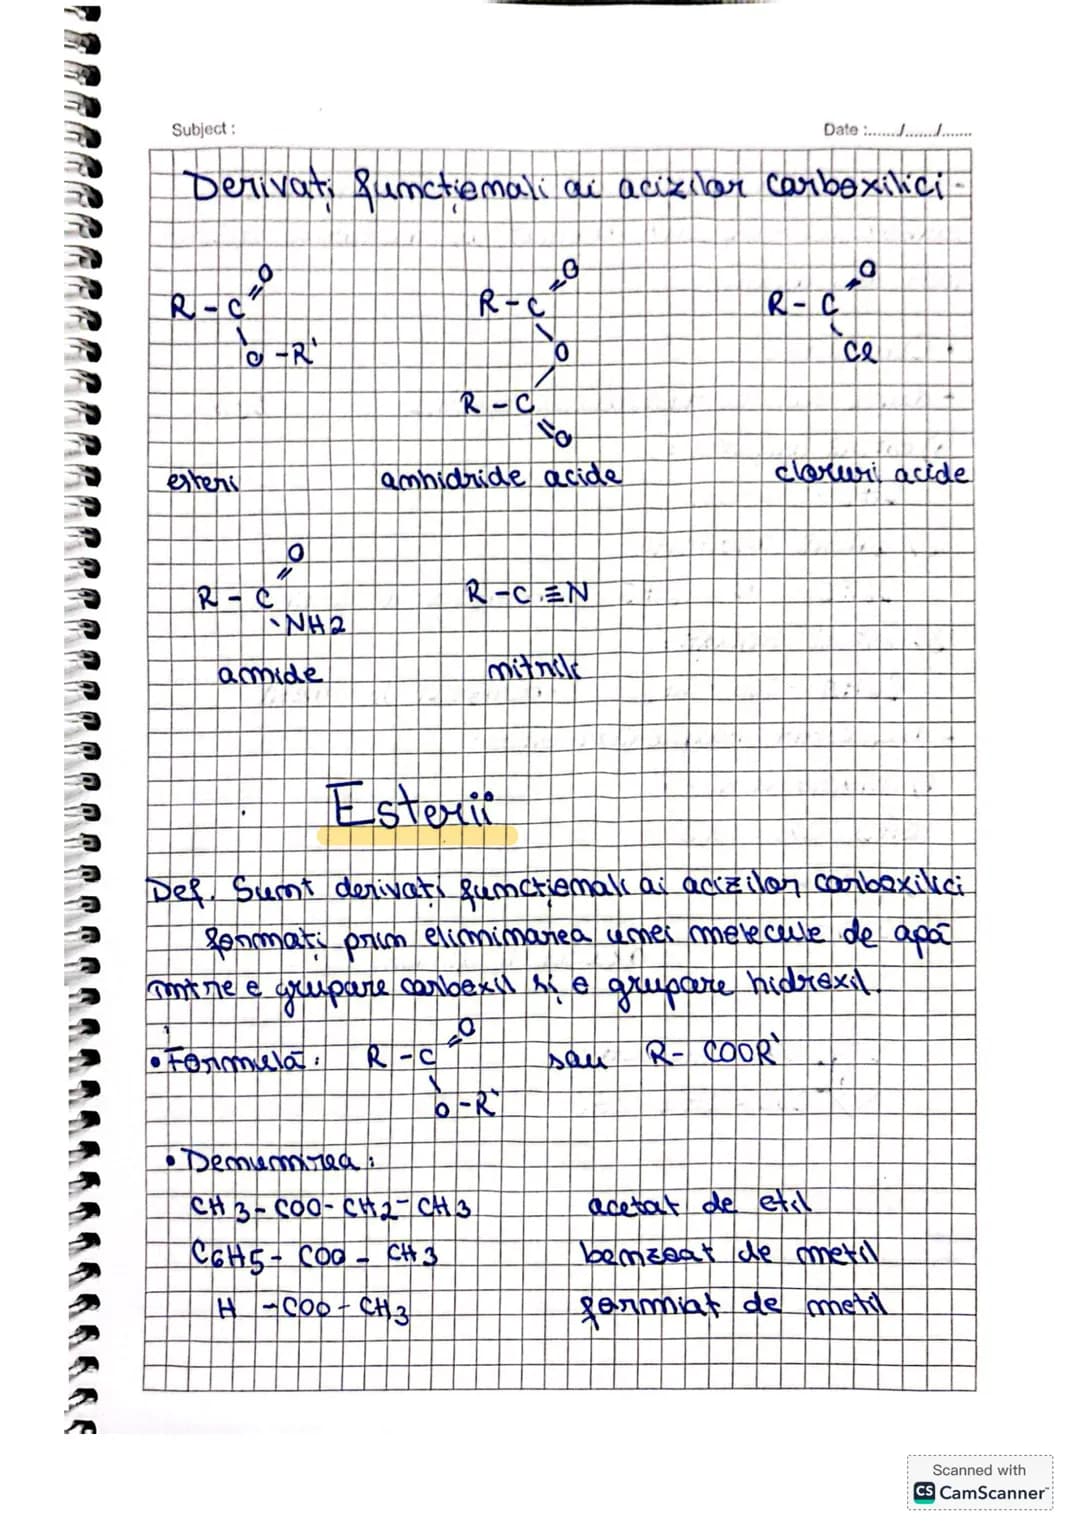 Subject :
Date :....../....../......
Derivați funcționali ai acizilor carboxilici
R - C =O O -R'
R - C =O O R - C =O
R - C =O Cl
esteri anhidride acide cloruri acide
R - C =O NH2
R - C ≡ N
amide nitrili
Esterii
Def. Sunt derivați funcționali ai acizilor carboxilici
formați prin eliminarea unei molecule de apă
intre o grupare carboxil și o grupare hidroxil.
• Formulă: R - C =O O - R' sau R - COOR'
• Denumirea:
CH3 - COO - CH2 - CH3 acetat de etil
C6H5 - COO - CH3 benzoat de metil
H - COO - CH3 formiat de metil
Scanned with
CS CamScanner